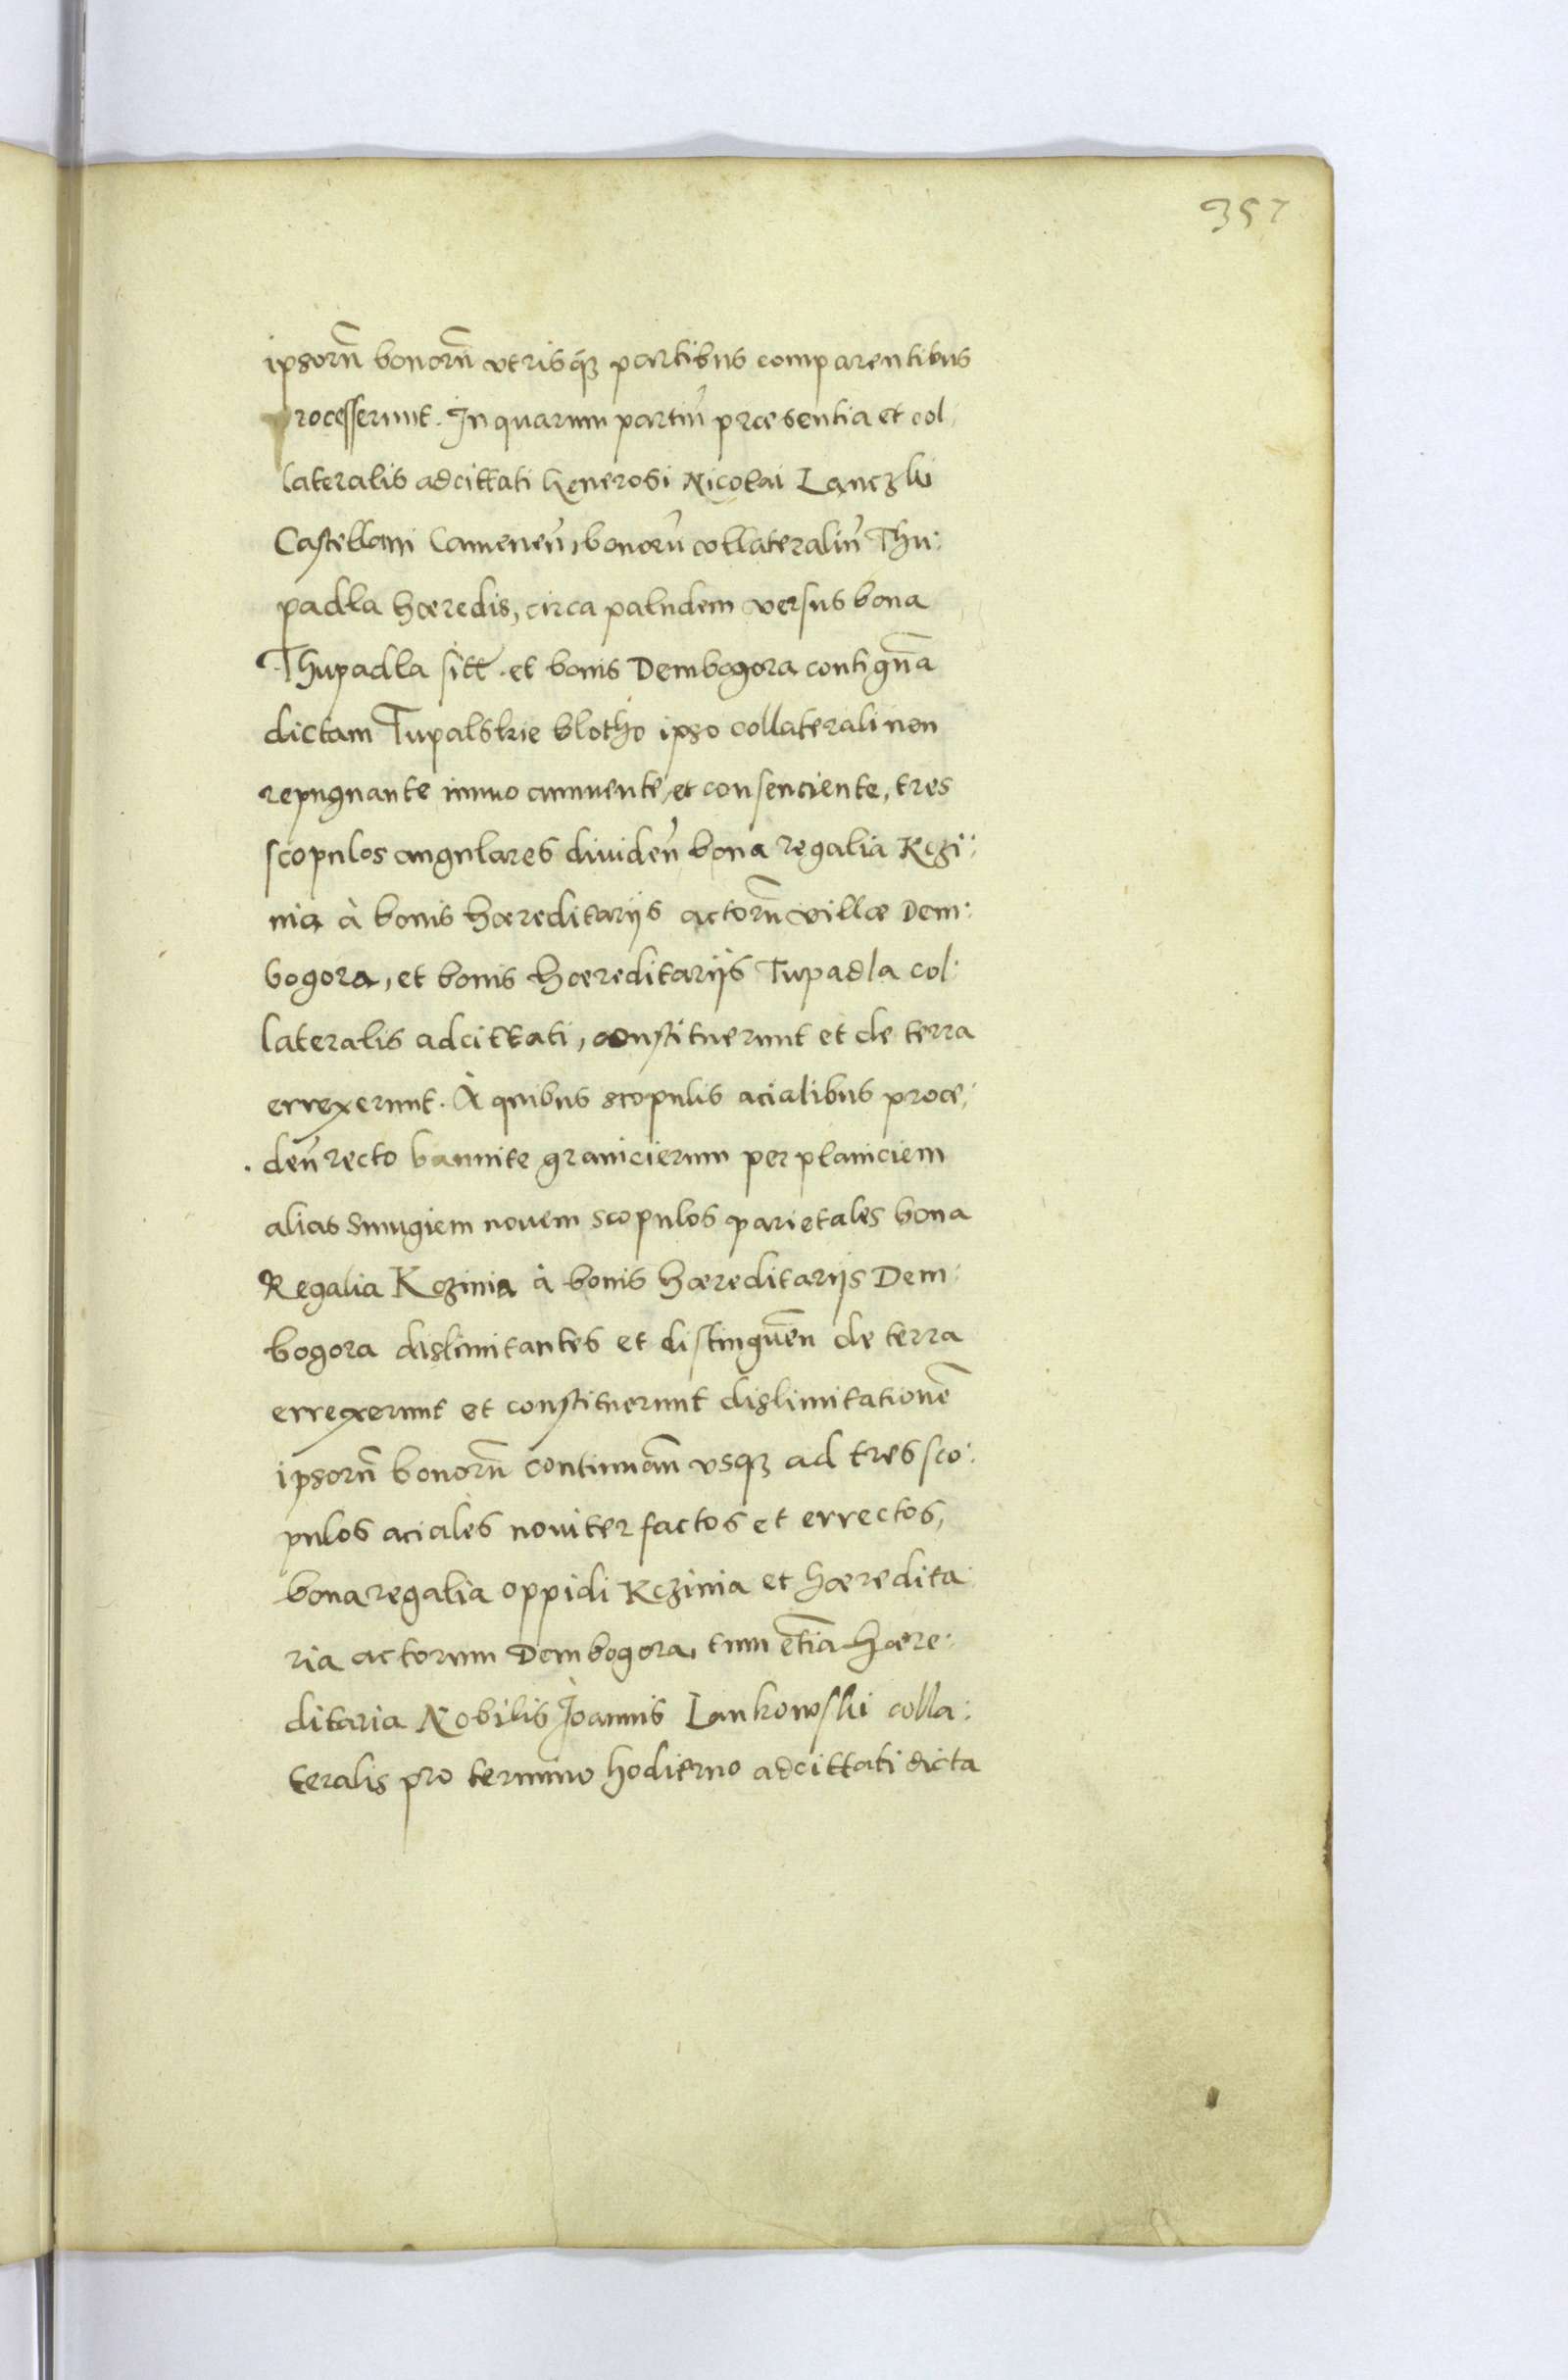 357
ipsorū bonorū vtrisq́ꝫ partibus comparentibus
processerunt. In quarum partiū præsentia et col:
lateralis adcittati Generosi Nicolai Lanczki
Castellani Camenēn, bonorū collateraliū Thu:
padla hæredis, circa paludem versus bona
Thupadla sitt̄. et bonis Dembogora contiguā
dictam Tupalskie blotho ipso collaterali non
repugnante immo annuente, et consenciente, tres
scopulos angulares dividen̄ bona regalia Kczi:
nia à bonis hæreditarijs actorū villæ Dem:
bogora, et bonis hæreditarijs Tupadla col:
lateralis adcittati, constituerunt et de terra
errexerunt. A quibus scopulis acialibus proce:
den̄ recto limite granicierum per planiciem
alias Smugiem novem scopulos parietales bona
Regalia Kczinia à bonis hæreditarijs Dem:
bogora dislimitantes et distinguen̄ de terra
errexerunt et constituerunt dislimitationē
ipsorū bonorū continuān̄ vsqꝫ ad tres sco:
pulos aciales noviter factos et errectos,
bona regalia oppidi Kczinia et hæredita:
ria actorum Dembogora, tum etiā hære:
ditaria Nobilis Joannis Lankowski colla:
teralis pro termino hodierno adcittati dicta